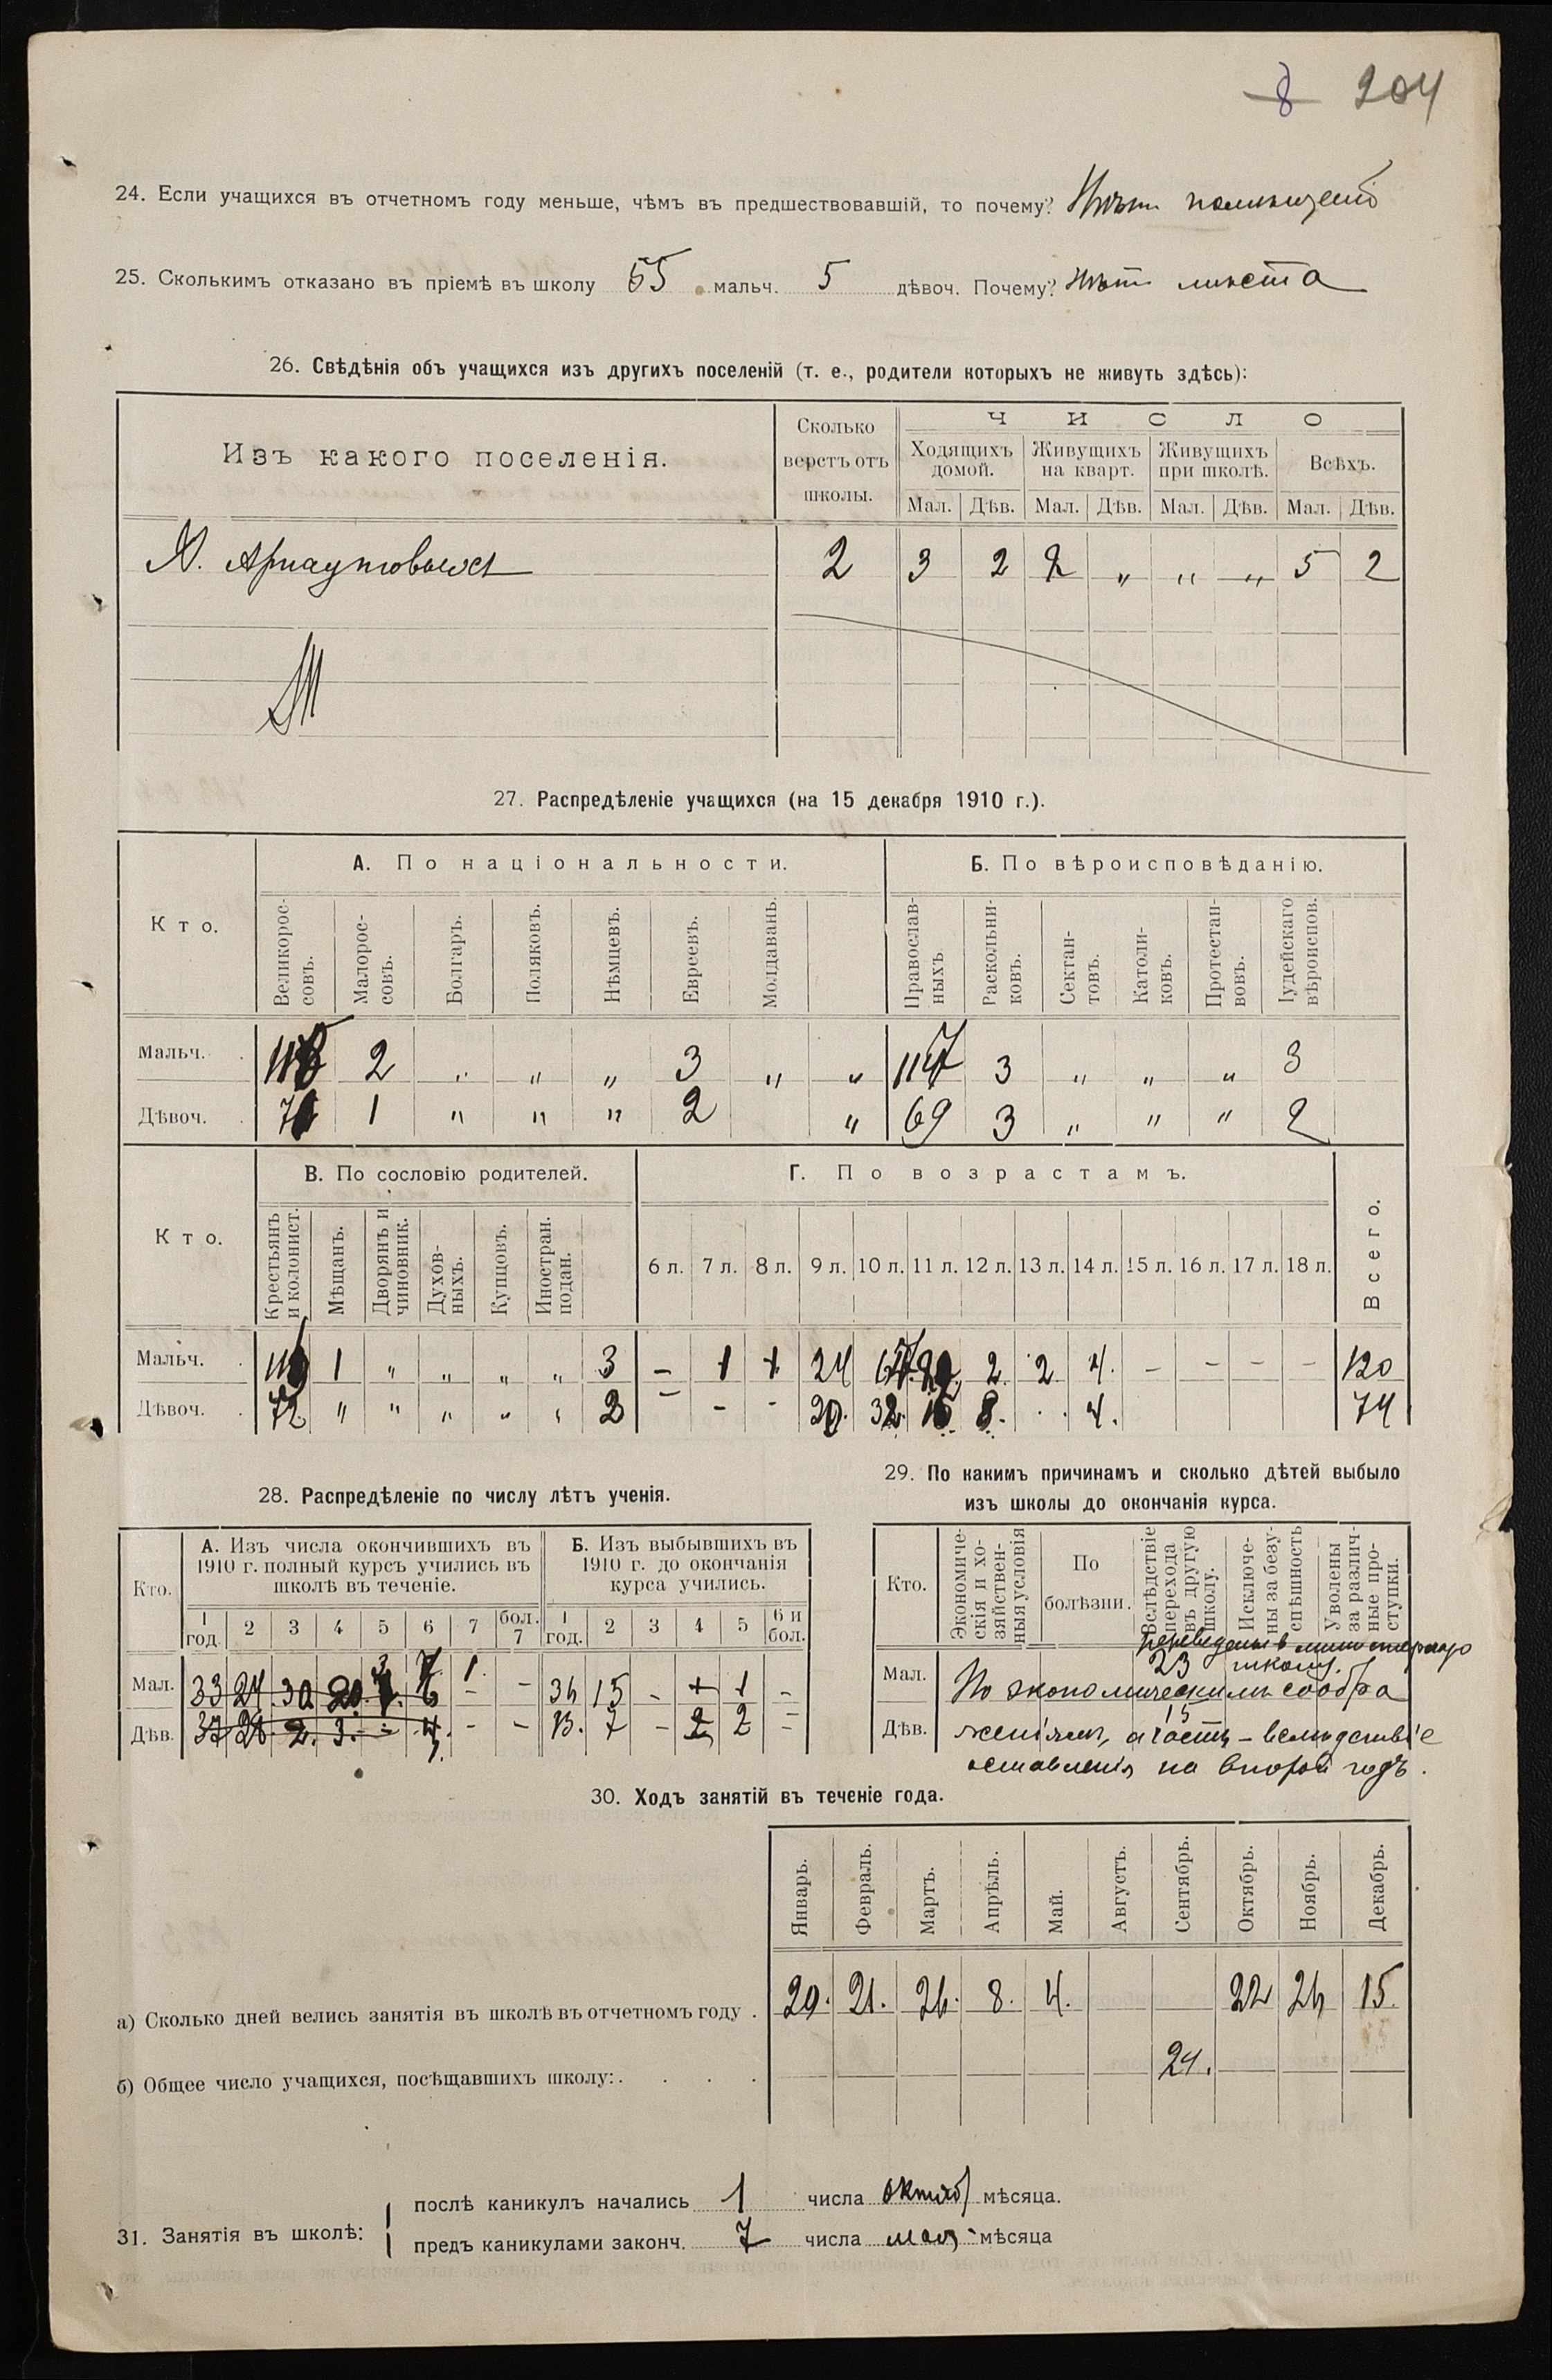 8 204
24. Если учащихся въ отчетномъ году меньше, чѣмъ въ предшествовавшій, то почему? Нѣтъ
25. Сколькимъ отказано въ пріемѣ въ школу 55 мальч. 5 дѣвоч. Почему? Нѣтъ мѣста
26. Свѣдѣнія объ учащихся изъ другихъ поселеній (т. е., родители которыхъ не живуть здѣсь):
Изъ какого поселенія. Сколько верстъ отъ школы. Число
Ходящихъ домой. Живущихъ на кварт. Живущихъ при школѣ. Всѣхъ.
Мал. Дѣв. Мал. Дѣв. Мал. Дѣв. Мал. Дѣв.
2 3 2 2 „ „ „ 5 2
27. Распредѣленіе учащихся (на 15 декабря 1910 г.).
Кто. А. По національности. Б. По вѣроисповѣданію.
Великорос-совъ. Малорос-совъ. Болгаръ. Поляковъ. Нѣмцевъ. Евреевъ. Молдаванъ. Православ-ныхъ Раскольни-ковъ. Сектан-товъ. Католи-ковъ. Протестан-вовъ. Іудейскаго вѣроиспов.
Мальч. 2 „ „ „ 3 „ „ 117 3 „ „ „ 3
Дѣвоч. 1 „ „ „ 2 „ 69 3 „ „ „ 2
Кто. В. По сословію родителей. Г. По возрастамъ. Всего.
Крестьянъ и колонист. Мѣщанъ. Дворянъ и чиновник. Духов-ныхъ. Купцовъ. Иностран. подан. 6 л. 7 л. 8 л. 9 л. 10 л. 11 л. 12 л. 13 л. 14 л. 15 л. 16 л. 17 л. 18 л.
Мальч. 1 „ „ „ „ 3 – 1 1 24 2 2 4. – – – – 120
Дѣвоч. 72 „ „ „ „ – - 32. 8. 4. 74
28. Распредѣленіе по числу лѣтъ ученія.
29. По какимъ причинамъ и сколько дѣтей выбыло
изъ школы до окончанія курса.
Кто. А. Изъ числа окончившихъ въ 1910 г. полный курсъ учились въ школѣ въ теченіе. Б. Изъ выбывшихъ въ 1910 г. до окончанія курса учились.
1 год. 2 3 4 5 6 7 бол. 7 1 год. 2 3 4 5 6 и бол.
Кто. Экономиче-скія и хо-зяйствен-ныя условія По болѣзни. Вслѣдствіе перехода въ другую школу. Исключе-ны за безу-спѣшность Уволены за различ-ные про-ступки.
Мал. 33 24 30 1. – 15 – 1 1 –
Дѣв. 2. 3. – – – 13. 7 – 2 2 –
23 школу.
Мал. По экономическимъ сообра
15
Дѣв. женіямъ, а частью – вслѣдствіе
оставленія на второй годъ.
30. Ходъ занятій въ теченіе года.
Январь. Февраль. Мартъ. Апрѣль. Май. Августъ. Сентябрь. Октябрь. Ноябрь. Декабрь.
а) Сколько дней велись занятія въ школѣ въ отчетномъ году . 20. 21. 8. 4. 22 15.
б) Общее число учащихся, посѣщавшихъ школу: . . . . 24.
31. Занятія въ школѣ:
послѣ каникулъ начались 1 числа октяб мѣсяца.
предъ каникулами законч. 7 числа мая мѣсяца